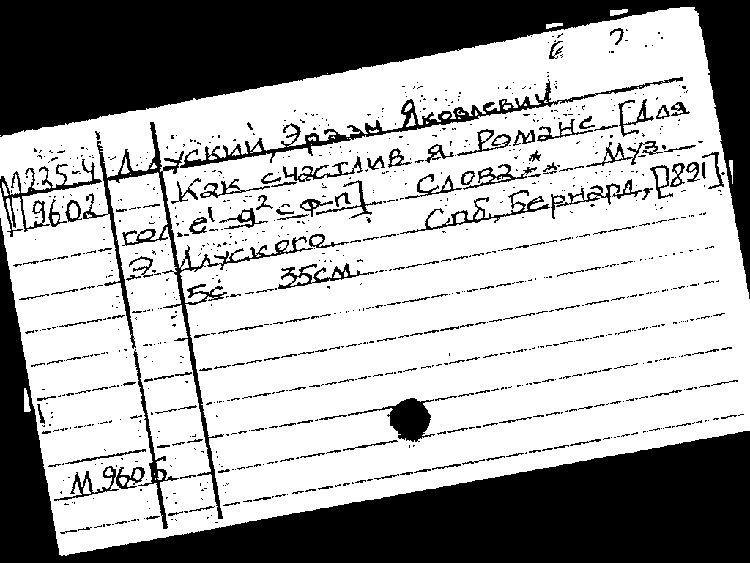 М225-4 Длуский, Эразм Яковлевич
VI 9602 Как счастлив я. Романс. [Для
гол. e¹-g² с ф-п]. Слова ** Муз.
Э. Длуского. Спб, Бернард, [1891].
5с. 35см.
М.960Б.